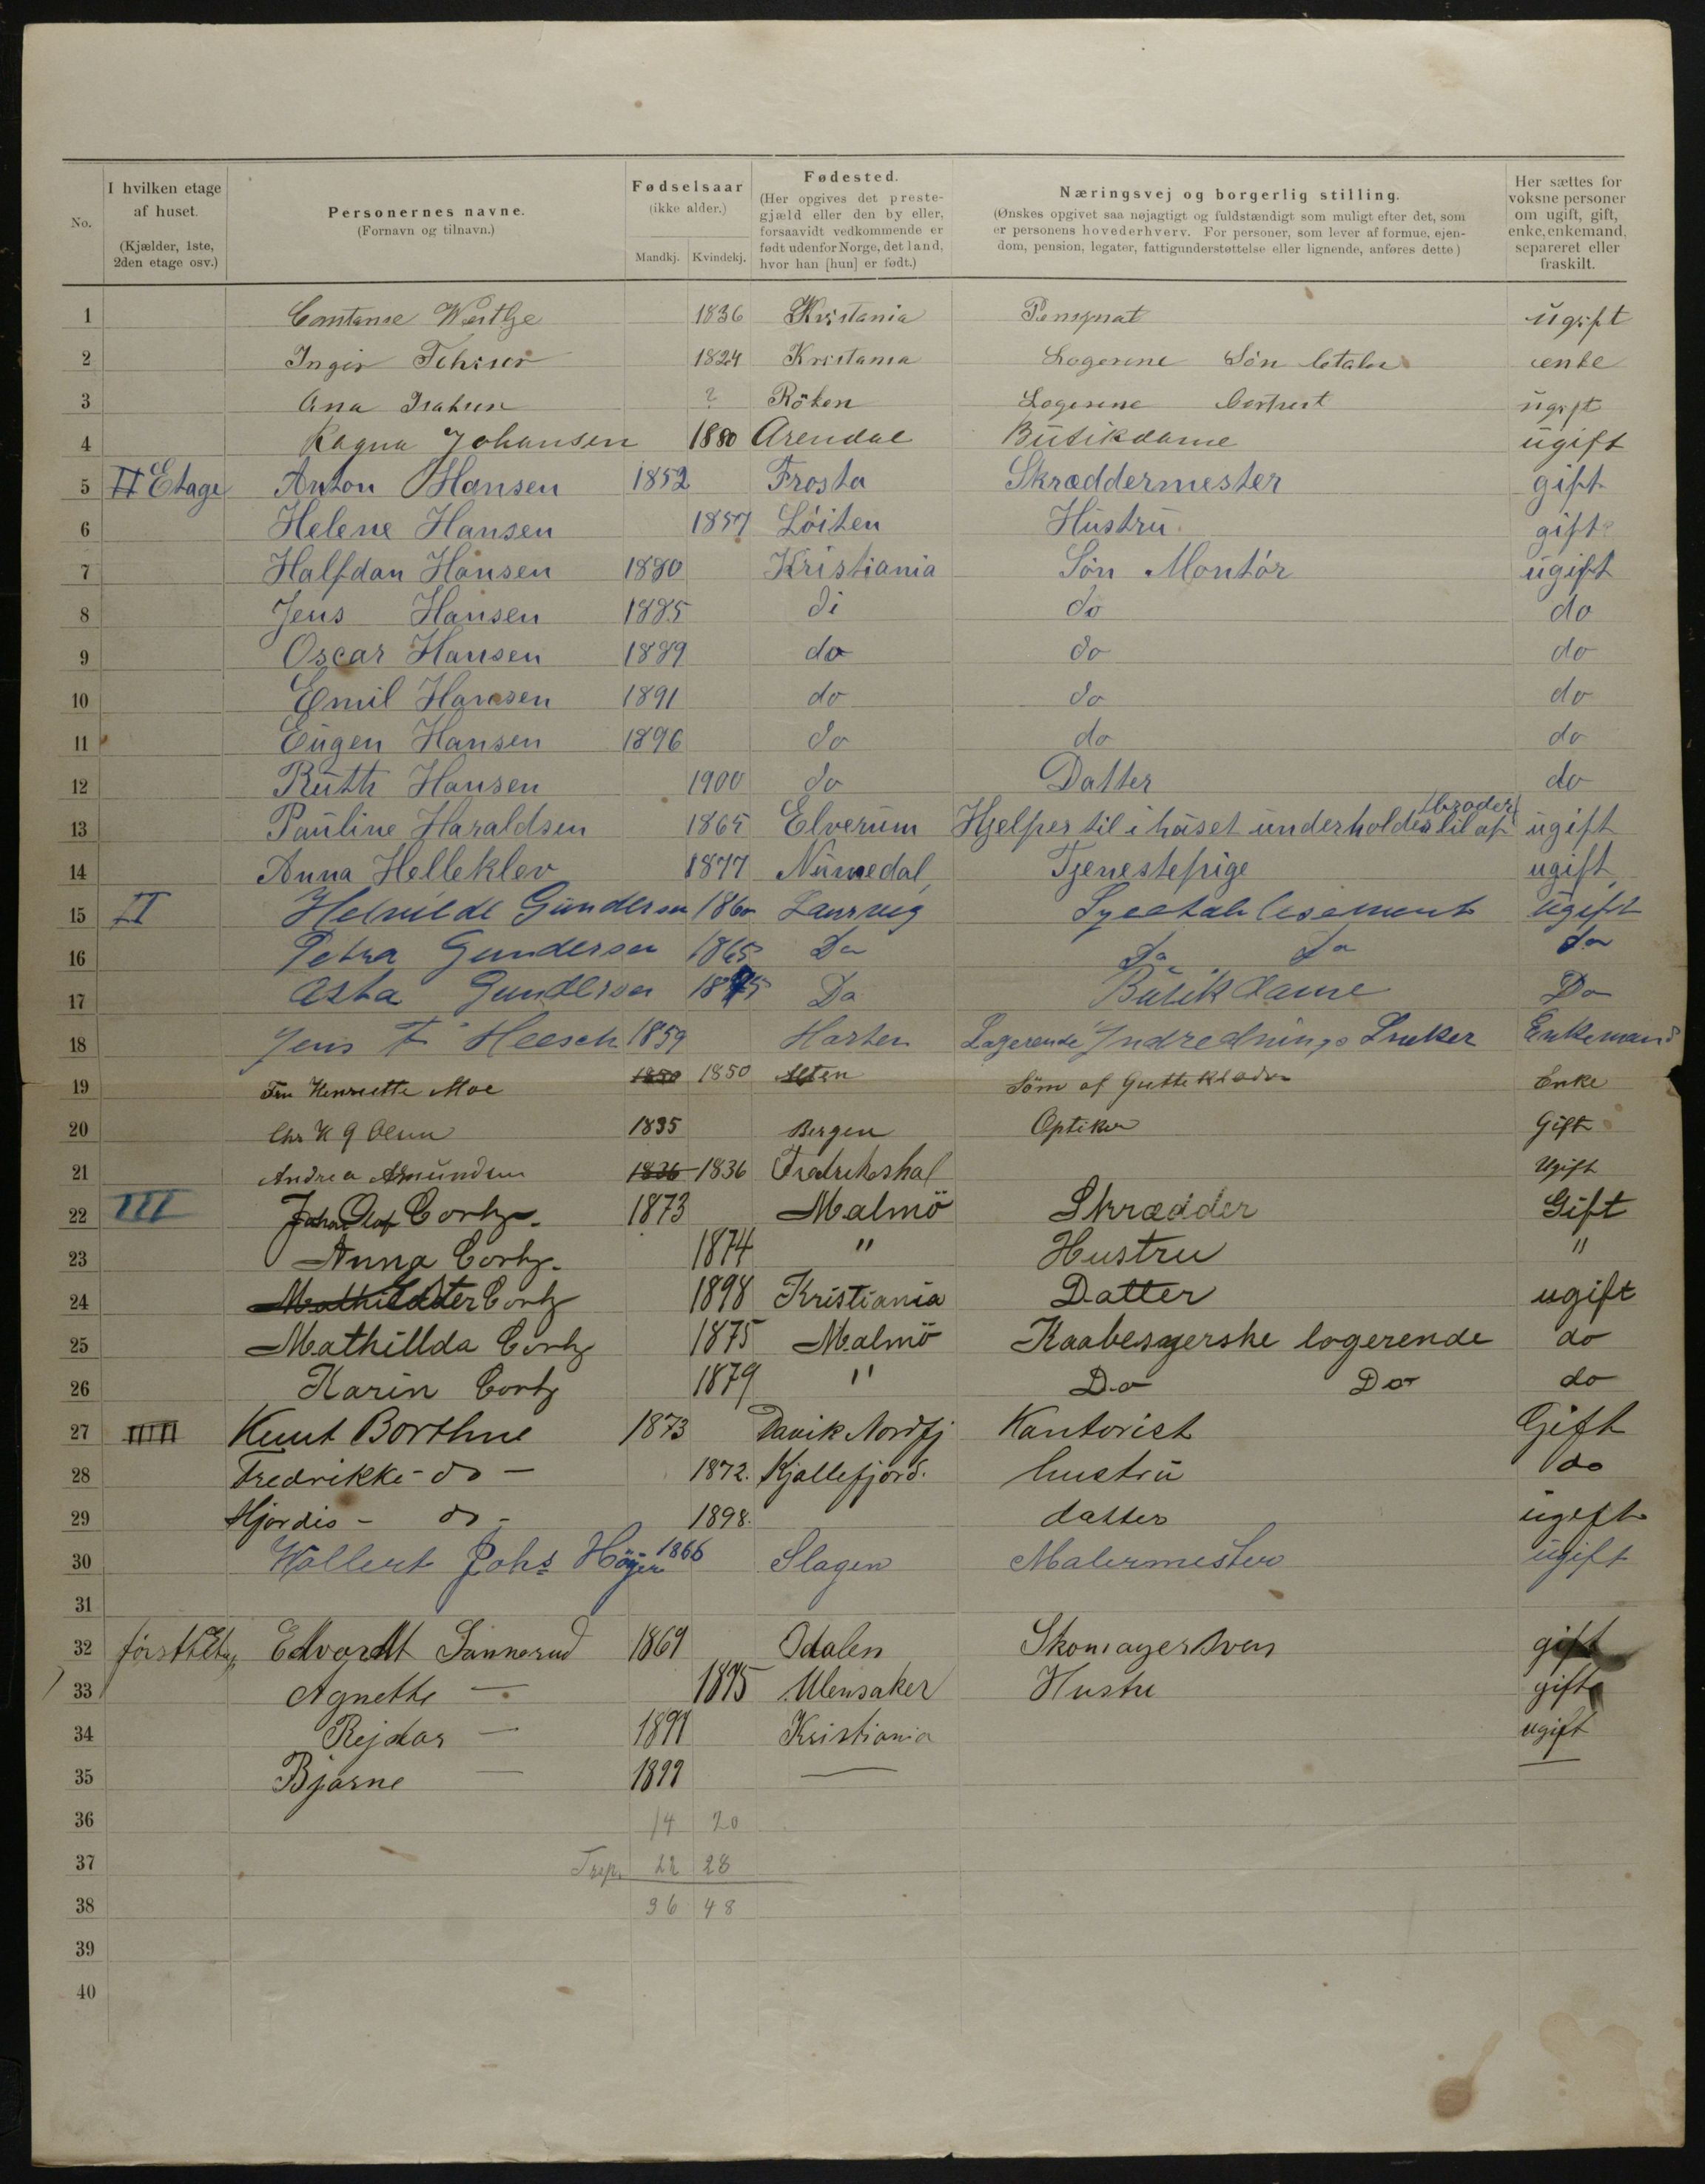 No.
I hvilken etage af huset. (Kjælder, 1ste, 2den etage osv.)
Personernes navne. (Fornavn og tilnavn.)
Fødselsaar (ikke alder.) Mandkj. Kvindekj.
Fødested. (Her opgives det prestegjæld eller den by eller, forsaavidt vedkommende er født udenfor Norge, det land, hvor han [hun] er født.)
Næringsvej og borgerlig stilling. (Ønskes opgivet saa nøjagtigt og fuldstændigt som muligt efter det, som er personens hovederhverv. For personer, som lever af formue, ejendom, pension, legater, fattigunderstøttelse eller lignende, anføres dette)
Her sættes for voksne personer om ugift, gift, enke, enkemand, separeret eller fraskilt.
1 Constanse 1836 Kristania ugift
2 1824 Kristania Logerene Sön enke
3 Ana ? Röken Logerene ugift
4 Ragna Johansen 1880 Arendal Butikdame ugift
5 II Etage Anton Hansen 1852 Frosta Skræddermester gift
6 Helene Hansen 1857 Löiten Hustru gift
7 Halfdan Hansen 1880 Kristiania Sön Montör ugift
8 Jens Hansen 1885 do do do
9 Oscar Hansen 1889 do do do
10 Emil Hansen 1891 do do do
11 Eugen Hansen 1896 do do do
12 Ruth Hansen 1900 do Datter do
13 Pauline Haraldsen 1865 Elverum Hjelper til i huset underholdes til af broder ugift
14 Anna Helleklev 1877 Numedal Tjenestepige ugift
15 II Gundersen 1860 Laurvig ugift
16 Petra Gundersen 1865 Do Do Do do
17 Asta Gundersen 1875 Do Butik dame Do
18 Jens F Heesch 1859 Logerende Indrednings Sneker Enkemand
19 Fru Henriette Moe 1850 1850 Söm af Gutteklæder Enke
20 Chr 1835 Bergen Optiker Gift
21 Andrea Amundsen 1836 1836 Fredrikshal Ugift
22 III Johan Olaf Cortz 1873 Malmö Skrædder Gift
23 Anna Cortz 1874 " Hustru "
24 Cortz 1898 Kristiania Datter ugift
25 Mathillda Cortz 1875 Malmö Kaabesyerske logerende do
26 Karin Cortz 1879 " Do Do do
27 IIIII Knut Borthne 1873 Davik Nordfj Kontorist Gift
28 Fredrikke - do - 1872. Kjøllefjord. hustru do
29 Hjördis - do - 1898. datter ugift
30 Wollert Johs Höyer 1866 Slagen Malermester ugift
31
32 Edvardt Sannerud 1869 Odalen Skomagersven gift
33 Agnethe — 1875 Ulensaker Hustru gift
34 Rejdar — 1897 Kristiania ugift
35 Bjarne — 1899 — —
36 14 20
37 Trsp. 22 28
38 36 48
39
40